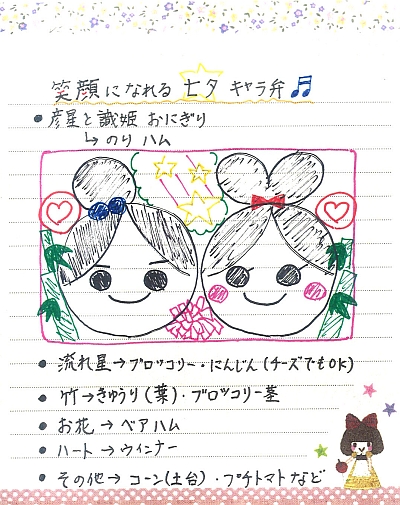 笑顔になれる 七夕 キャラ弁
• 彦星と識姫 おにぎり
↳ のり ハム
• 流れ星→ブロッコリー・にんじん(チーズでもOK)
• 竹→きゅうり(葉)・ブロッコリー茎
• お花→ベアハム
• ハート→ウインナー
• その他→コーン(土台)・プチトマトなど